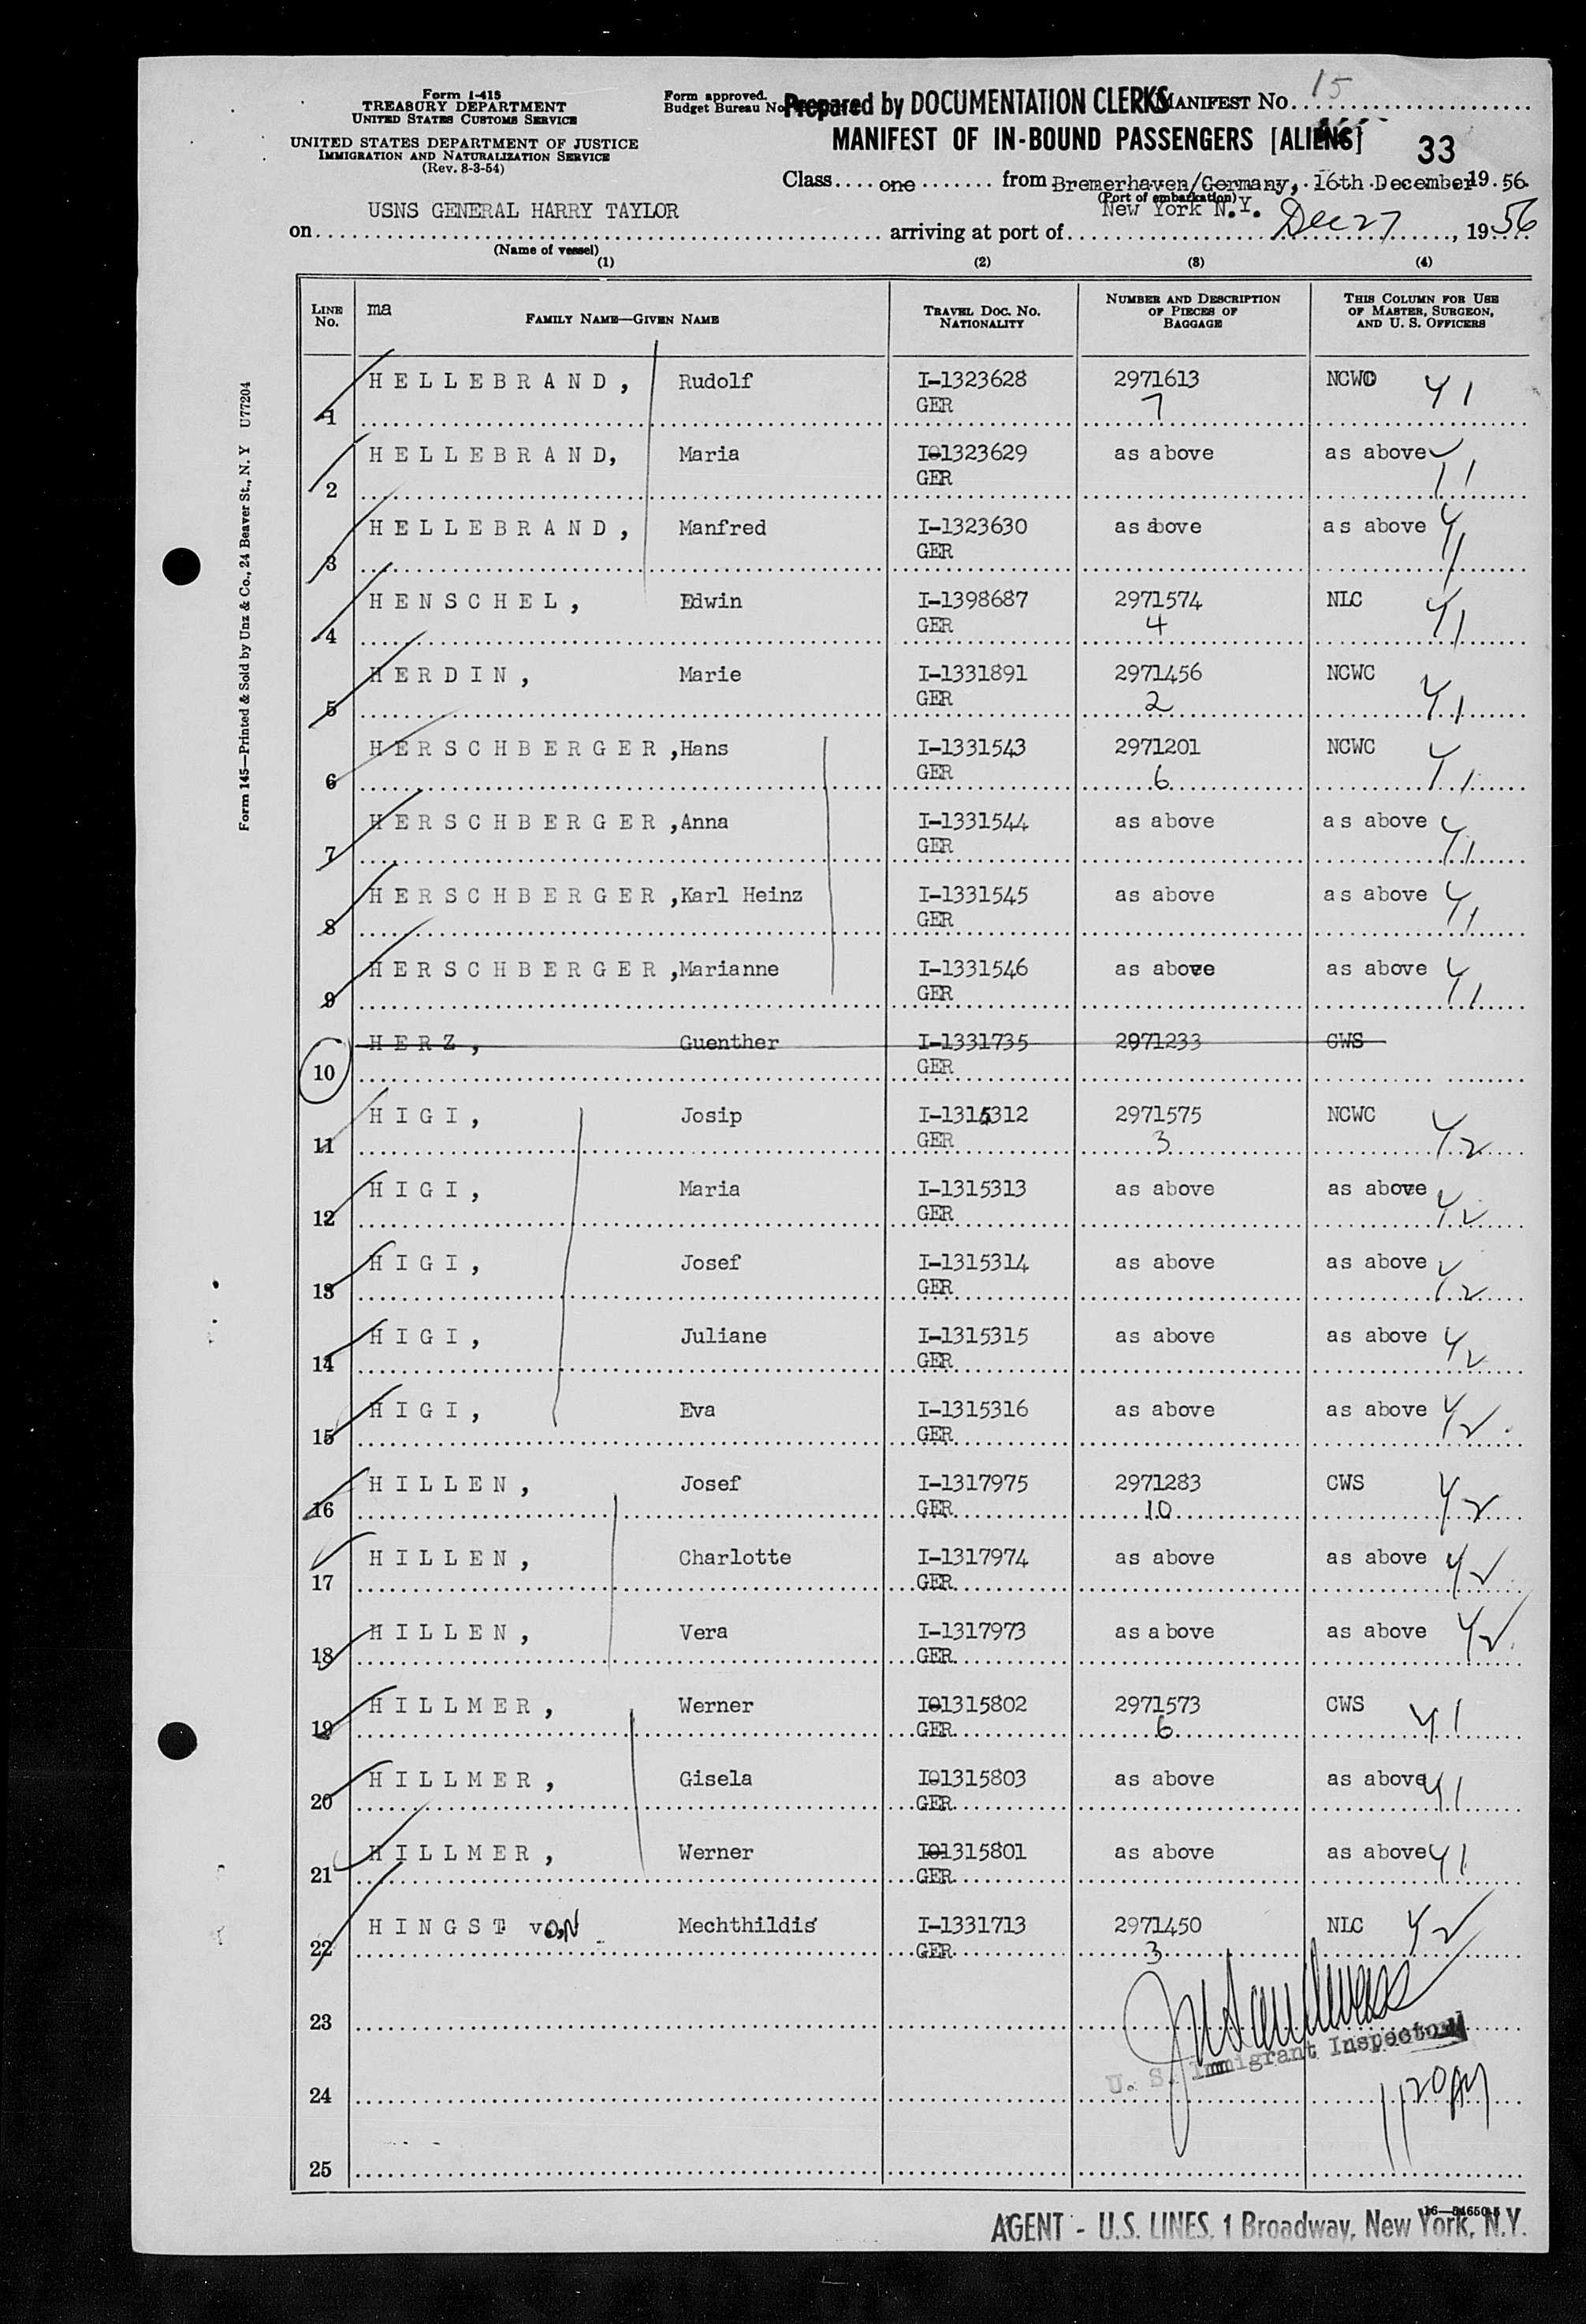 Form I-415
TREASURY DEPARTMENT
UNITED STATES CUSTOMS SERVICE
UNITED STATES DEPARTMENT OF JUSTICE
IMMIGRATION AND NATURALIZATION SERVICE
(Rev. 8-3-54)
Form approved.
Budget Bureau No.
Prepared by DOCUMENTATION CLERKS
MANIFEST NO. 15
MANIFEST OF IN-BOUND PASSENGERS [ALIENS] 33
Class.... one ....... from Bremerhaven/Germany, 16th December 19 56
(Port of embarkation)
on USNS GENERAL HARRY TAYLOR arriving at port of New York N.Y. Dec 27, 1956
(Name of vessel)
(1) (2) (3) (4)
LINE NO. ma FAMILY NAME—GIVEN NAME TRAVEL DOC. NO. NATIONALITY NUMBER AND DESCRIPTION OF PIECES OF BAGGAGE THIS COLUMN FOR USE OF MASTER, SURGEON, AND U. S. OFFICERS
1 HELLEBRAND, Rudolf I-1323628 2971613 NCWC 41
GER 7
2 HELLEBRAND, Maria I-1323629 as above as above
GER 11
3 HELLEBRAND, Manfred I-1323630 as above as above
GER
4 HENSCHEL, Edwin I-1398687 2971574 NLC 41
GER 4
5 HERDIN, Marie I-1331891 2971456 NCWC 41
GER 2
6 HERSCHBERGER, Hans I-1331543 2971201 NCWC 41
GER 6
7 HERSCHBERGER, Anna I-1331544 as above as above 41
GER
8 HERSCHBERGER, Karl Heinz I-1331545 as above as above 41
GER
9 HERSCHBERGER, Marianne I-1331546 as above as above 41
GER
10 HERZ, Guenther I-1331735 2971233 CWS
GER
11 HIGI, Josip I-1315312 2971575 NCWC 42
GER 3
12 HIGI, Maria I-1315313 as above as above 42
GER
13 HIGI, Josef I-1315314 as above as above 42
GER
14 HIGI, Juliane I-1315315 as above as above 42
GER
15 HIGI, Eva I-1315316 as above as above 42
GER
16 HILLEN, Josef I-1317975 2971283 CWS 42
GER 10
17 HILLEN, Charlotte I-1317974 as above as above 42
GER
18 HILLEN, Vera I-1317973 as above as above 42
GER
19 HILLMER, Werner I-1315802 2971573 CWS 41
GER 6
20 HILLMER, Gisela I-1315803 as above as above 41
GER
21 HILLMER, Werner I-1315801 as above as above 41
GER
22 HINGST VON Mechthildis I-1331713 2971450 NLC 42
GER 3
23
U. S. Immigrant Inspector
24 1120 AM
25
16—54650-5
AGENT - U.S. LINES, 1 Broadway, New York, N.Y.
Form 145—Printed & Sold by Unz & Co., 24 Beaver St., N. Y U77204